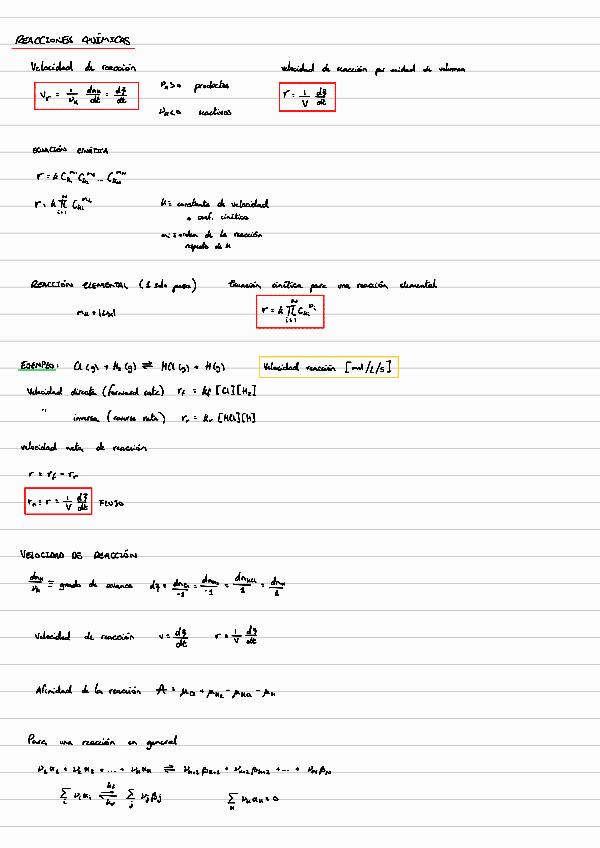 REACCIONES QUÍMICAS
Velocidad de reacción
velocidad de reacción por unidad de volumen
v_r = 1/ν_k dn_k/dt = dξ/dt
ν_k > 0 productos
r = 1/V dξ/dt
ν_k < 0 reactivos
ECUACIÓN CINÉTICA
r = k C_{k_1}^{m_1} C_{k_2}^{m_2} ... C_{k_N}^{m_N}
r = k ∏_{i=1}^{N} C_{k_i}^{m_i}
k = constante de velocidad
o coef. cinético
m_i = orden de la reacción
respecto de k
REACCIÓN ELEMENTAL (1 solo paso)
Ecuación cinética para una reacción elemental
m_k = |ν_k|
r = k ∏_{i=1}^{N} C_{k_i}^{ν_i}
EJEMPLO: Cl(g) + H₂(g) ⇌ HCl(g) + H(g)
Velocidad reacción [mol/L/s]
Velocidad directa (forward rate) r_f = k_f [Cl][H₂]
" inversa (reverse rate) r_r = k_r [HCl][H]
velocidad neta de reacción
r = r_f - r_r
r_n = r = 1/V dξ/dt FLUJO
VELOCIDAD DE REACCIÓN
dn_k/ν_k ≡ grado de avance dξ = dn_Cl/-1 = dn_H₂/-1 = dn_HCl/1 = dn_H/1
Velocidad de reacción v = dξ/dt r = 1/V dξ/dt
Afinidad de la reacción A = μ_Cl + μ_H₂ - μ_HCl - μ_H
Para una reacción en general
ν₁α₁ + ν₂α₂ + ... + ν_nα_n ⇌ ν_{n+1}β_{n+1} + ν_{n+2}β_{n+2} + ... + ν_Nβ_N
∑_i ν_iα_i ⇌ (k_f, k_r) ∑_j ν_jβ_j
∑_k ν_kα_k = 0